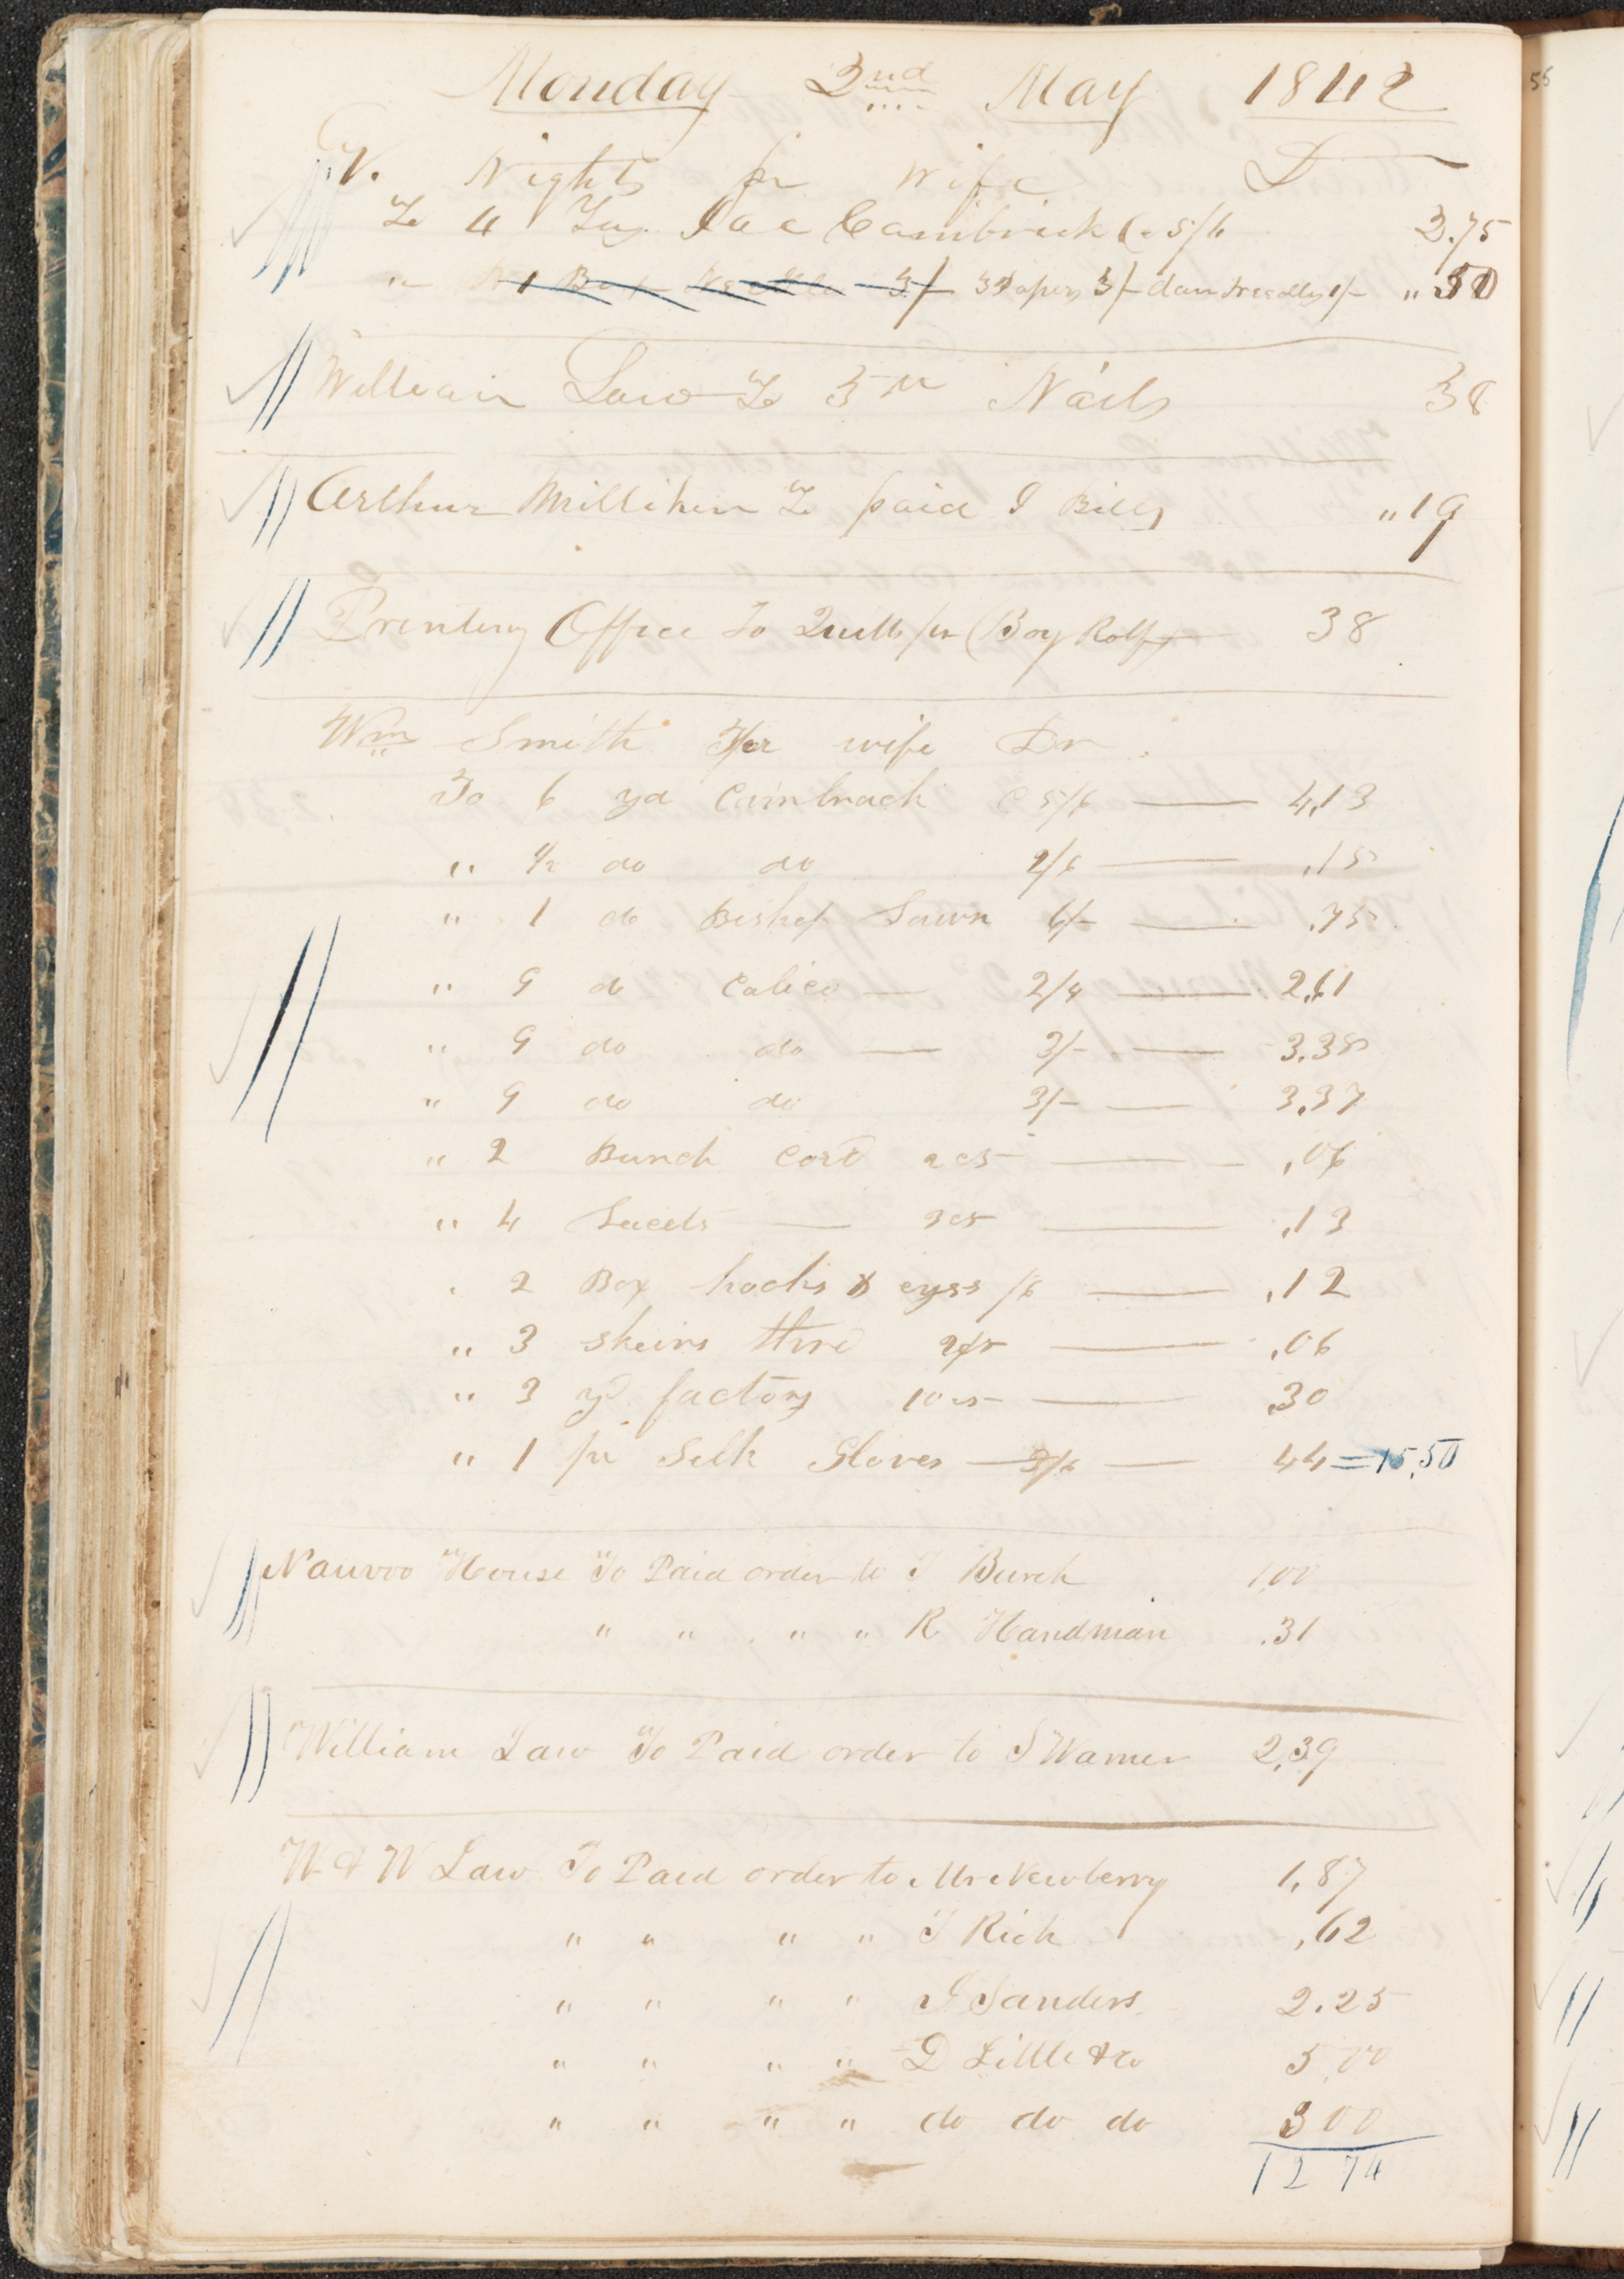 Monday 2nd May 1842
N. Nights pr wife D
To 4 Jac Cambrick @ 5/6 2.75
" 1 Box Needles 3/ 3 Papers 3/- dar Needles 1/- " 50
William Law To 3 lb Nails 38
Arthur Millikin To paid I Bills " 19
Printing Office To Quills pr (Boy Rolf) 38
Wm Smith Per wife Dr.
To 6 yd Cambrack @ 5/6 — 4,13
" 1/2 do do 2/6 — ,15
" 1 do Bishop Lawn 6/- — .75
" 9 do Calico — 2/4 — 2,61
" 9 do do — 3/- — 3.38
" 9 do do 3/- — 3,37
" 2 Bunch Cord 2cs — ,06
" 4 Laceds — 3cs — ,13
" 2 Box hooks & eyes /6 — ,12
" 3 skeins thred 2cs — ,06
" 3 yd factory 10cs — ,30
" 1 pr Silk Gloves — 3/6 — 44 = 15,50
Nauvoo House To Paid order to J Burch 1,00
" " " " R Handman .31
William Law To Paid order to S Warner 2,39
W & W Law To Paid order to Mr Newberry 1,87
" " " " J Rich ,62
" " " " J Sanders 2.25
" " " " D Little & Co 5,00
" " " " do do do 3 00
12 74
55